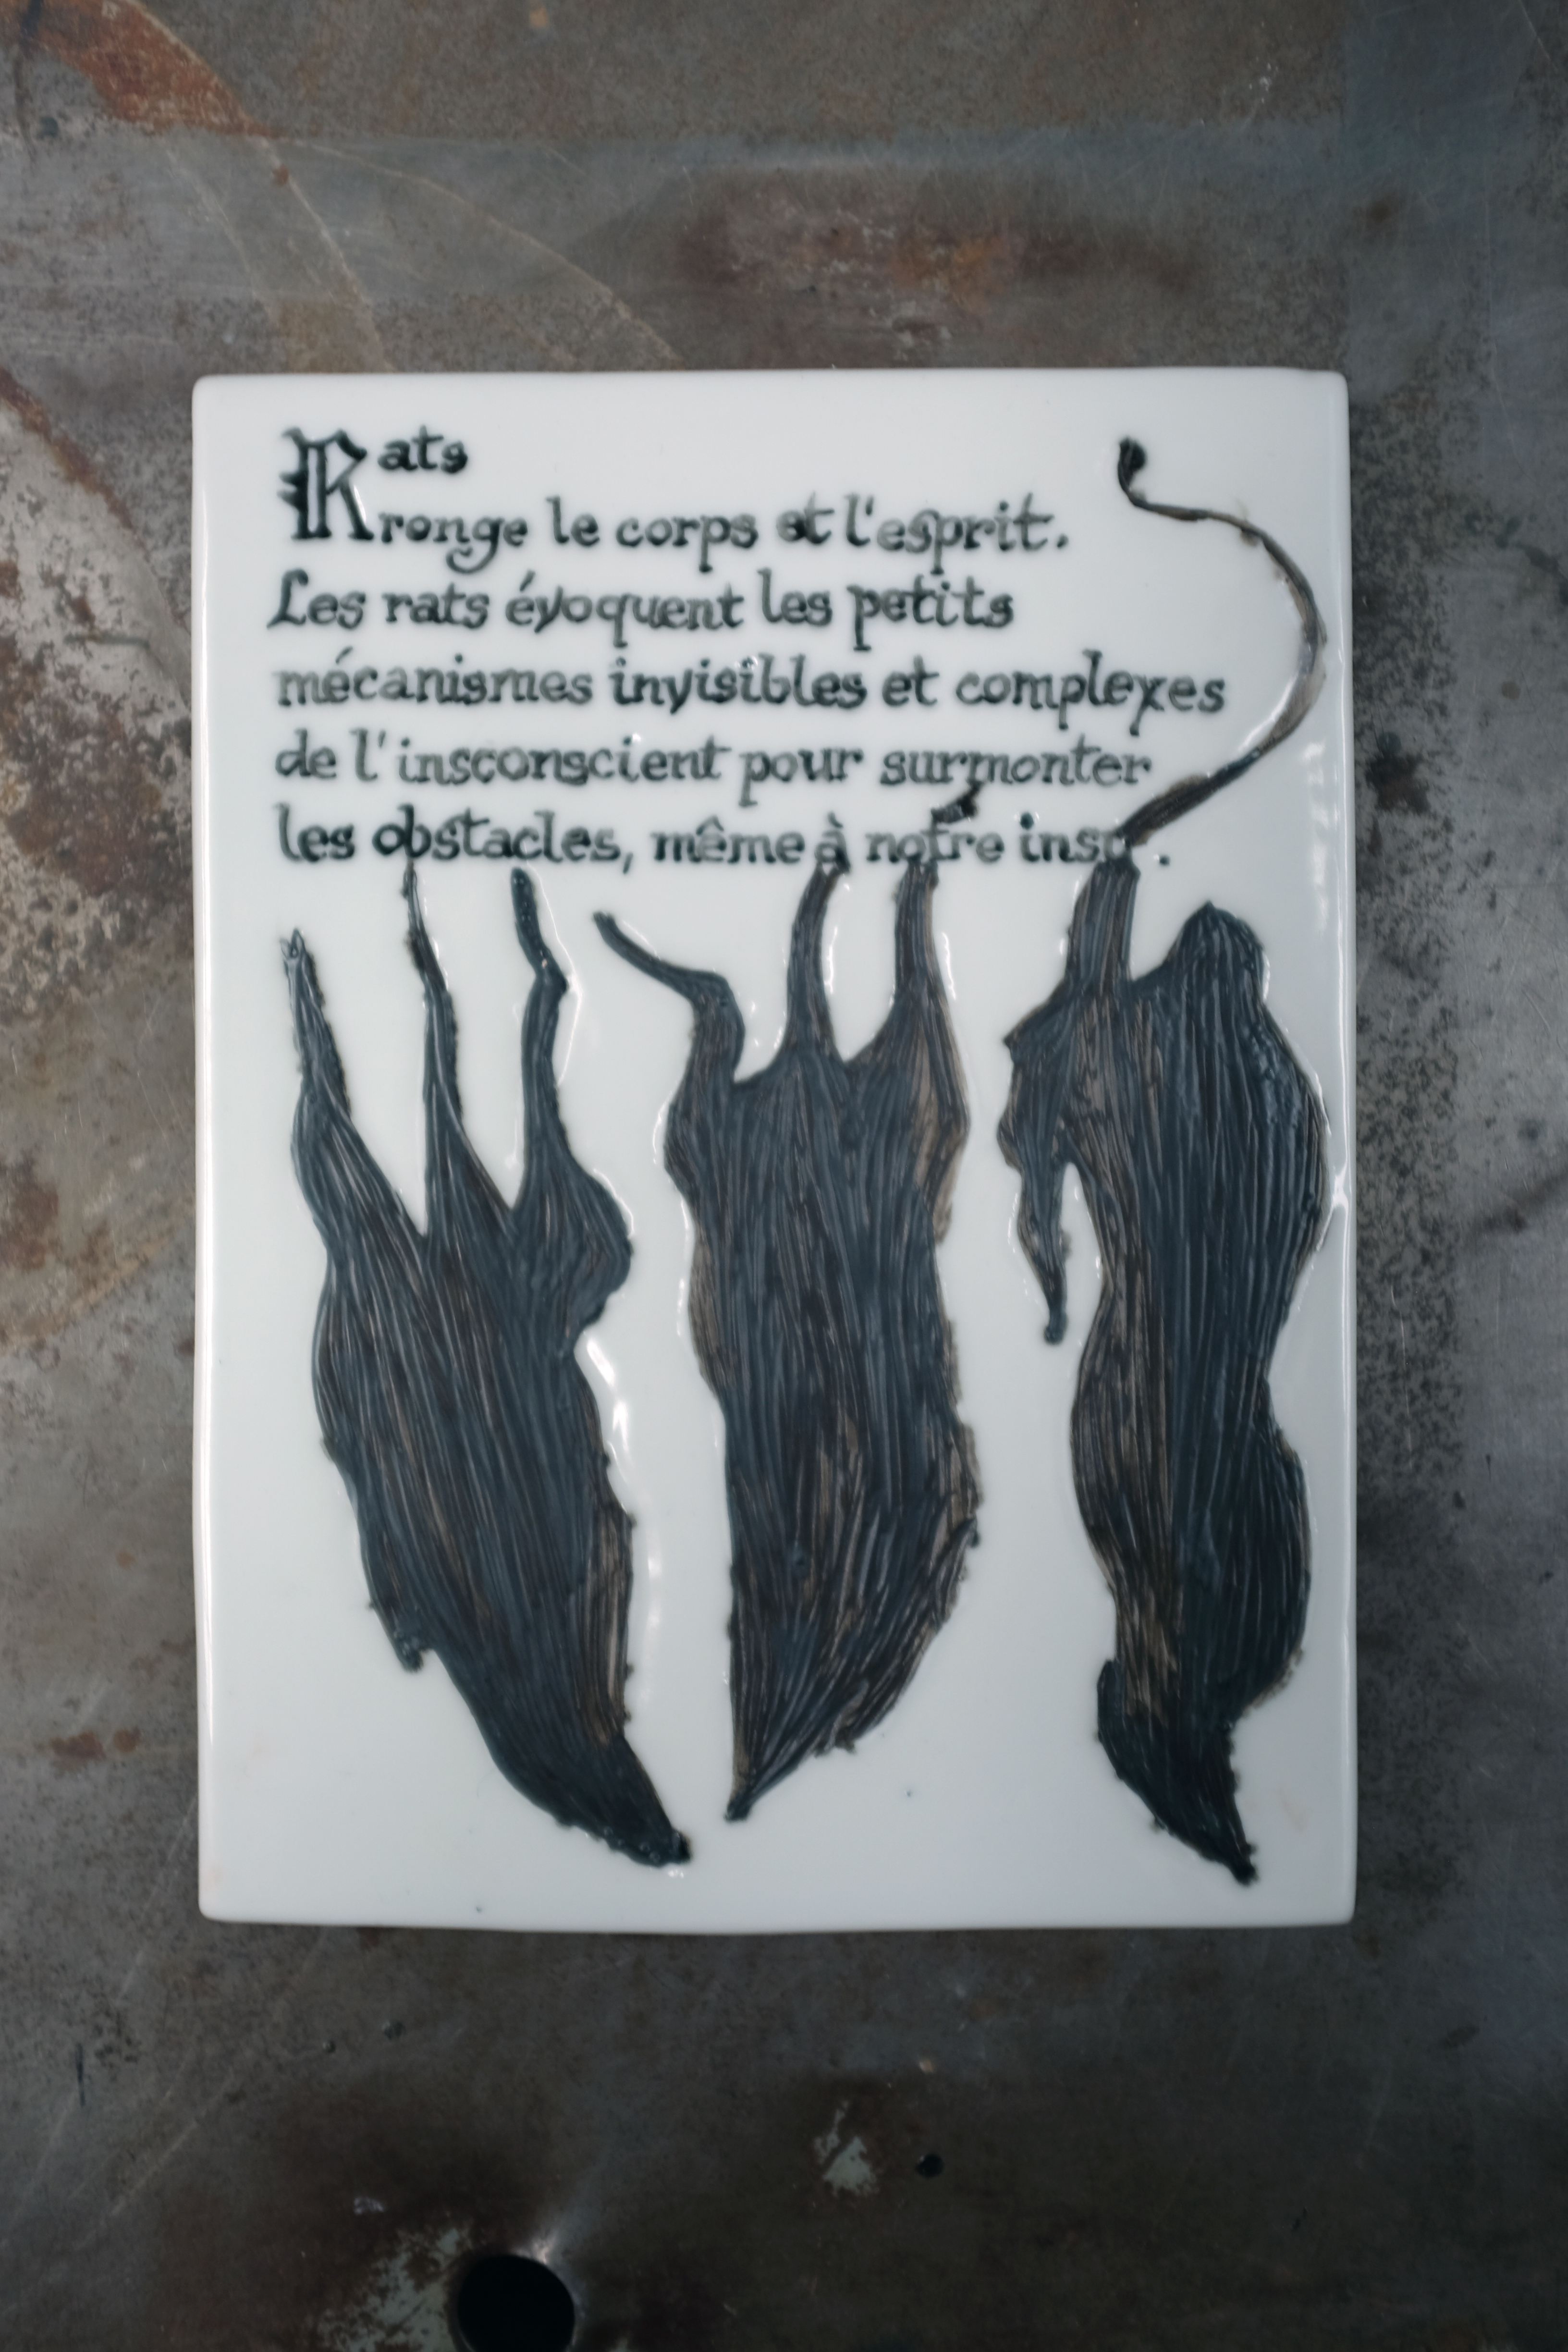 Rats
rronge le corps et l'esprit.
Les rats évoquent les petits
mécanismes invisibles et complexes
de l'insconscient pour surmonter
les obstacles, même à notre